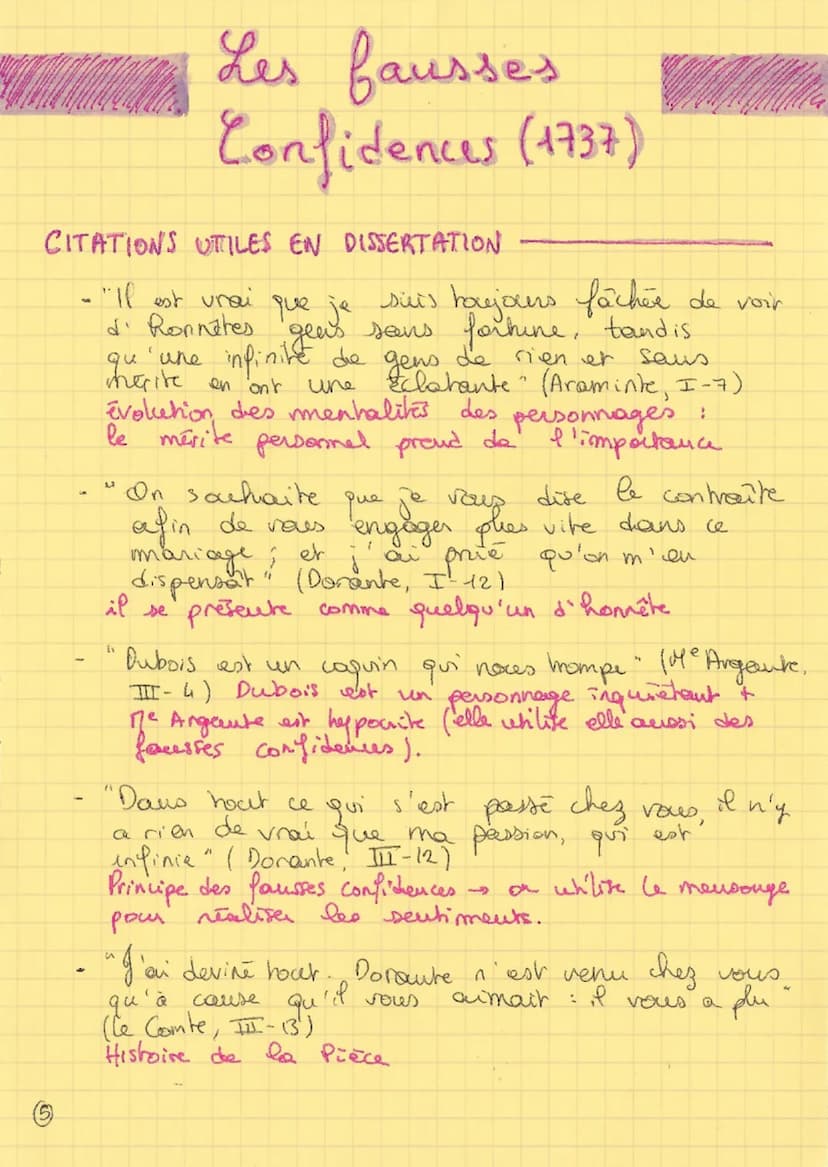 Les fausses
Confidences (1737)
CITATIONS UTILES EN DISSERTATION
- "Il est vrai que je suis toujours fâchée de voir
d'honnêtes gens sans fortune, tandis
qu'une infinité de gens de rien et sans
mérite en ont une éclatante" (Araminte, I-7)
Évolution des mentalités des personnages :
le mérite personnel prend de l'importance
- "On souhaite que je vous dise le contraire
afin de vous engager plus vite dans ce
mariage ; et j'ai prié qu'on m'en
dispensât" (Dorante, I-12)
il se présente comme quelqu'un d'honnête
- "Dubois est un coquin qui nous trompe" (Me Argante,
III-4) Dubois est un personnage inquiétant +
Me Argante est hypocrite (elle utilise elle aussi des
fausses confidences).
- "Dans tout ce qui s'est passé chez vous, il n'y
a rien de vrai que ma passion, qui est
infinie" (Dorante, III-12)
Principe des fausses confidences → on utilise le mensonge
pour réaliser les sentiments.
- "J'ai deviné tout. Dorante n'est venu chez vous
qu'à cause qu'il vous aimait : il vous a plu"
(Le Comte, III-13)
Histoire de la Pièce
5